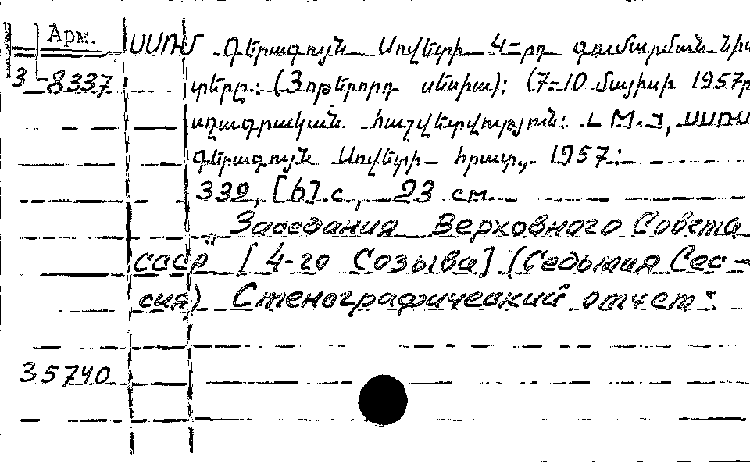 Арм.
ՍՍՌՄ Գերագույն Սովետի 4-րդ գումարման նիս
3-8337 տերը: (Յոթերորդ սեսիա): (7-10 մայիսի 1957թ
սղագրական հաշվետվություն: Մ., ՍՍՌՄ
գերագույն Սովետի հրատ., 1957:
339, [6] с., 23 см.
"Заседания Верховного Совета
СССР [4-го Созыва] (Седьмая Сес-
сия) Стенографический отчет:
35740